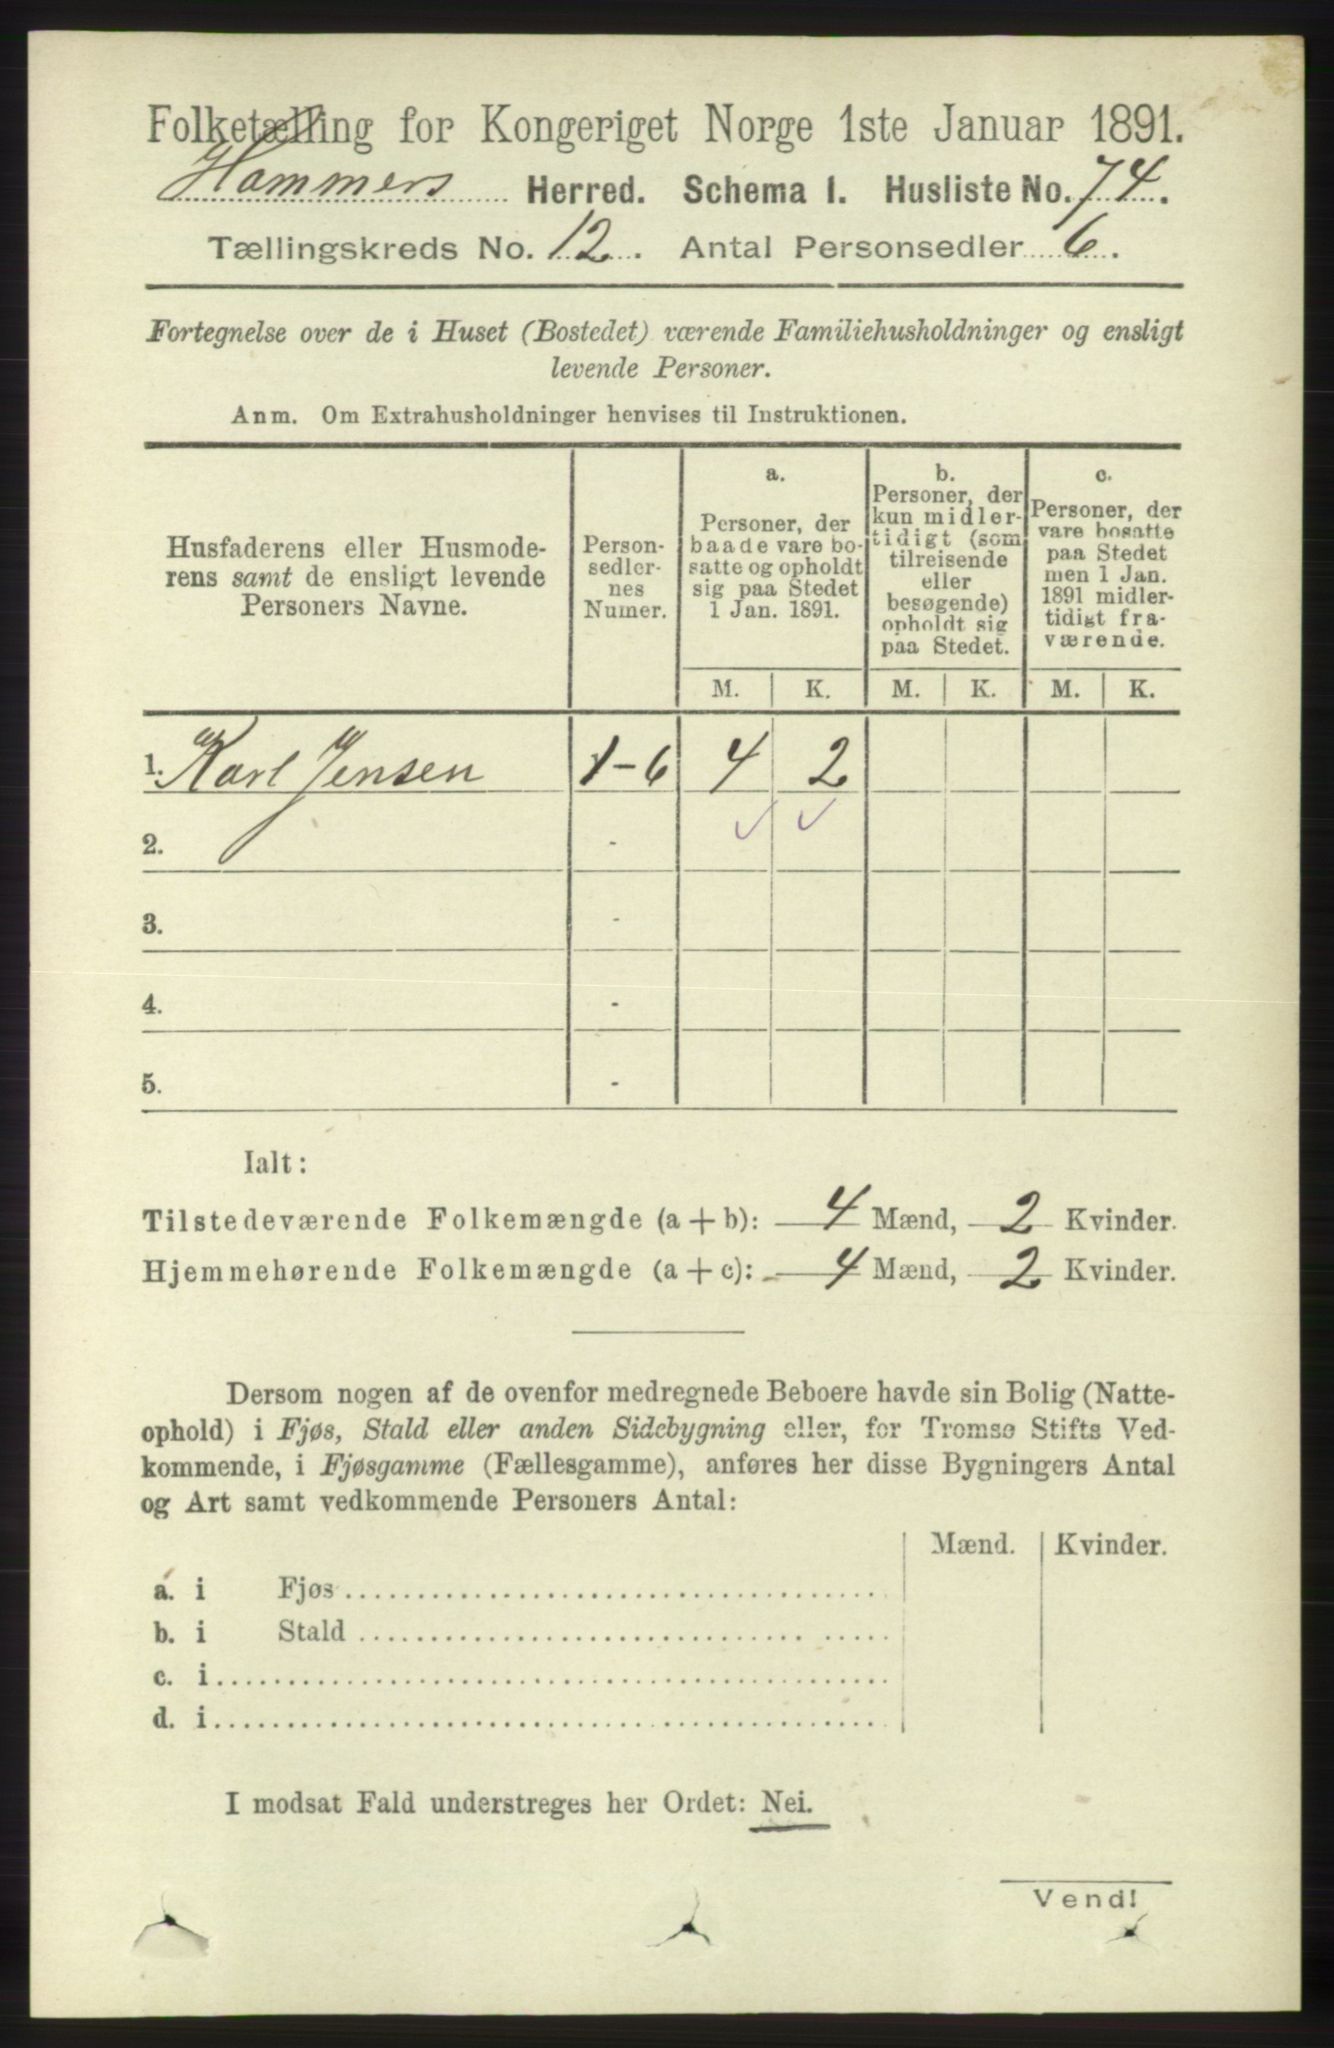 Folketælling for Kongeriget Norge 1ste Januar 1891.
Hammers Herred. Schema I. Husliste No. 74.
Tællingskreds No. 12. Antal Personsedler 6.
Fortegnelse over de i Huset (Bostedet) værende Familiehusholdninger og ensligt
levende Personer.
Anm. Om Extrahusholdninger henvises til Instruktionen.
Husfaderens eller Husmode-
rens samt de ensligt levende
Personers Navne.
Person-
sedler-
nes
Numer.
a.
Personer, der
baade vare bo-
satte og opholdt
sig paa Stedet
1 Jan. 1891.
b.
Personer, der
kun midler-
tidigt (som
tilreisende
eller
besøgende)
opholdt sig
paa Stedet.
c.
Personer, der
vare bosatte
paa Stedet
men 1 Jan.
1891 midler-
tidigt fra-
værende.
M. K. M. K. M. K.
1. Karl Jensen 1-6 4 2
2. -
3. -
4. -
5. -
Ialt:
Tilstedeværende Folkemængde (a + b): 4 Mænd, 2 Kvinder.
Hjemmehørende Folkemængde (a + c): 4 Mænd, 2 Kvinder.
Dersom nogen af de ovenfor medregnede Beboere havde sin Bolig (Natte-
ophold) i Fjøs, Stald eller anden Sidebygning eller, for Tromsø Stifts Ved-
kommende, i Fjøsgamme (Fællesgamme), anføres her disse Bygningers Antal
og Art samt vedkommende Personers Antal:
Mænd. Kvinder.
a. i Fjøs
b. i Stald
c. i
d. i
I modsat Fald understreges her Ordet: Nei.
Vend!